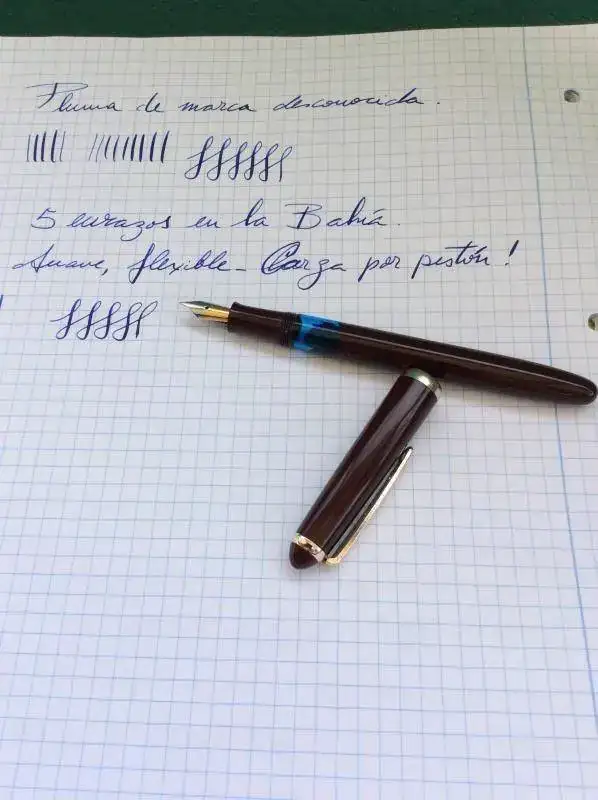 Pluma de marca desconocida.
5 eurazos en la Bahía.
Suave, flexible - Carga por pistón!